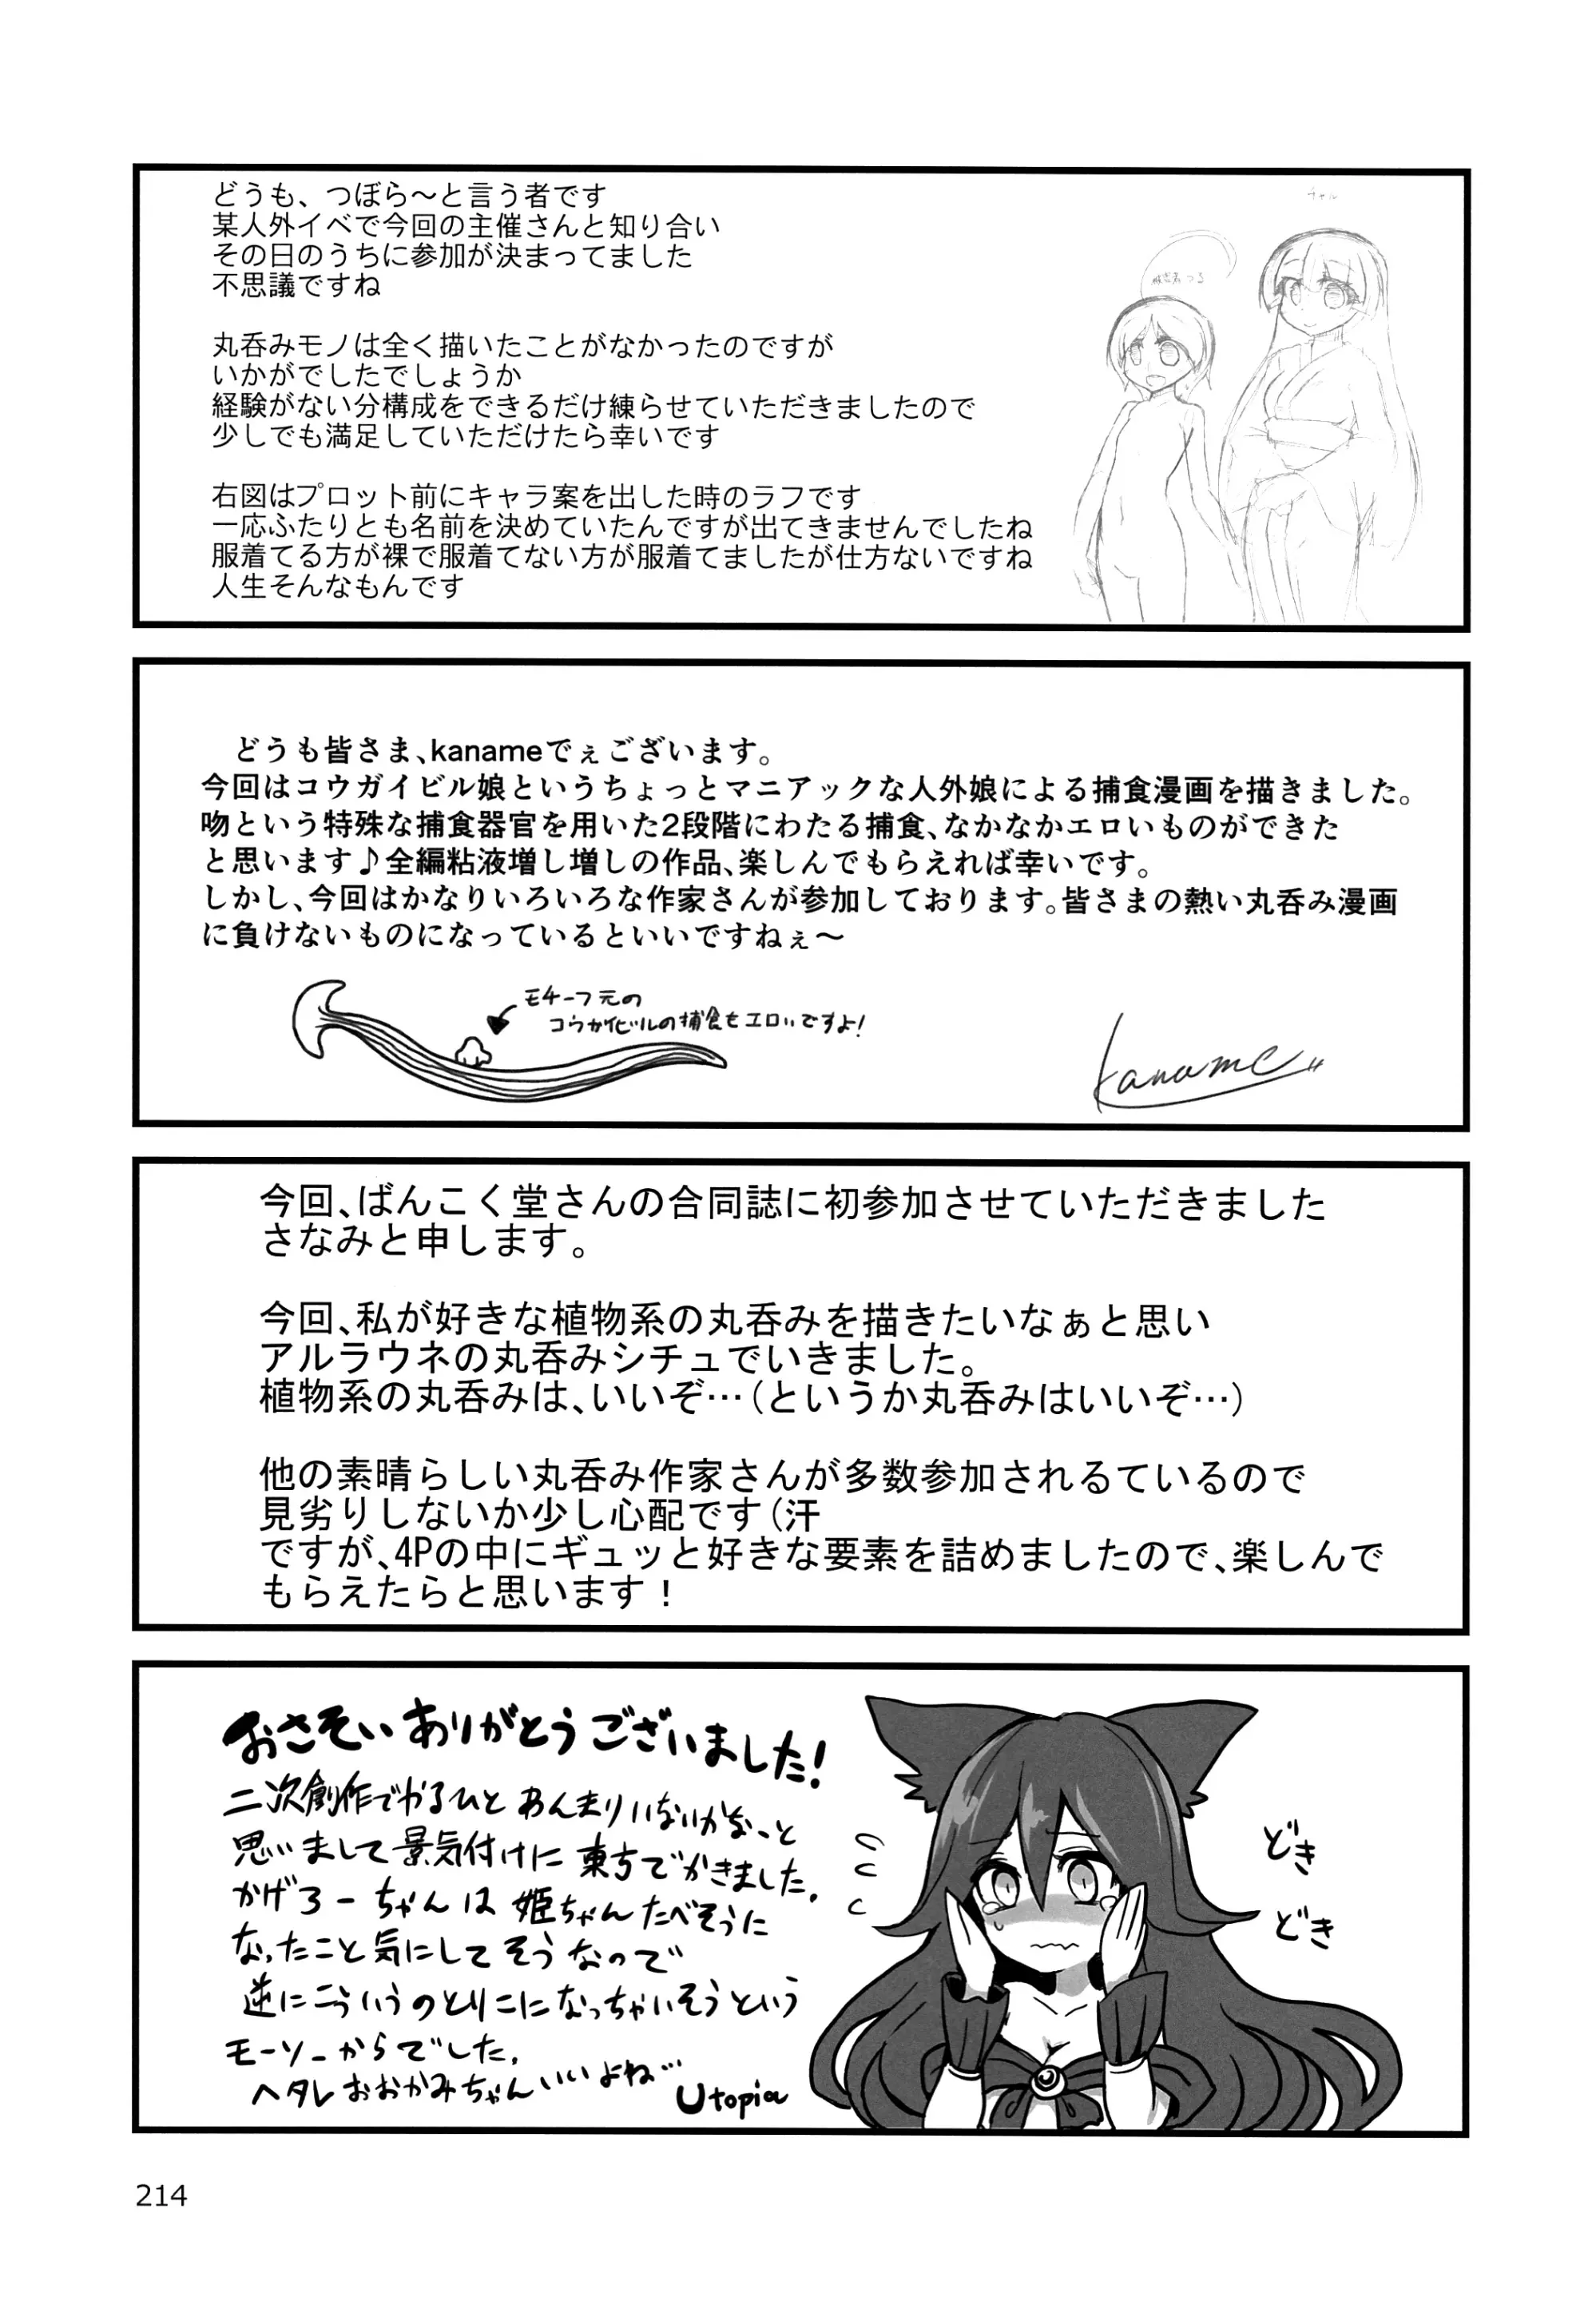 どうも、つぼら～と言う者です
某人外イベで今回の主催さんと知り合い
その日のうちに参加が決まってました
不思議ですね
丸呑みモノは全く描いたことがなかったのですが
いかがでしたでしょうか
経験がない分構成をできるだけ練らせていただきましたので
少しでも満足していただけたら幸いです
右図はプロット前にキャラ案を出した時のラフです
一応ふたりとも名前を決めていたんですが出てきませんでしたね
服着てる方が裸で服着てない方が服着てましたが仕方ないですね
人生そんなもんです
どうも皆さま、kanameでぇございます。
今回はコウガイビル娘というちょっとマニアックな人外娘による捕食漫画を描きました。
吻という特殊な捕食器官を用いた2段階にわたる捕食、なかなかエロいものができた
と思います♪全編粘液増し増しの作品、楽しんでもらえれば幸いです。
しかし、今回はかなりいろいろな作家さんが参加しております。皆さまの熱い丸呑み漫画
に負けないものになっているといいですねぇ～
モチーフ元の
コウガイビルの捕食もエロいですよ!
kaname
今回、ばんこく堂さんの合同誌に初参加させていただきました
さなみと申します。
今回、私が好きな植物系の丸呑みを描きたいなぁと思い
アルラウネの丸呑みシチュでいきました。
植物系の丸呑みは、いいぞ…(というか丸呑みはいいぞ…)
他の素晴らしい丸呑み作家さんが多数参加されるているので
見劣りしないか少し心配です(汗
ですが、4Pの中にギュッと好きな要素を詰めましたので、楽しんで
もらえたらと思います！
おさそいありがとうございました!
二次創作でかるひとあんまりいないかなーと
思いまして景気付けに東方でかきました.
かげろーちゃんは姫ちゃんたべそうに
なったこと気にしてそうなので
逆にこういうのとりこになっちゃいそうという
モーソーからでした.
ヘタレおおかみちゃんいいよね
Utopia
どき
どき
214